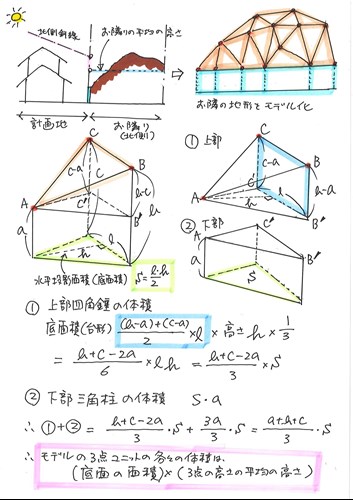 北側斜線
お隣りの平均の高さ
計画地
お隣り
(北側)
お隣の地形をモデル化
C
c-a
c
B
A
C'
B'
b-a
b
a
l
h
水平投影面積(底面積)
S = l·h/2
① 上部
C
c-a
B
A
C'
l
b-a
h
B'
② 下部
C'
A
B'
a
S
① 上部四角錐の体積
底面積(台形) (b-a)+(c-a)/2 × l × 高さ h × 1/3
= b+c-2a/6 × l h = b+c-2a/3 × S
② 下部三角柱の体積 S·a
∴ ①+② = b+c-2a/3 · S + 3a/3 · S = a+b+c/3 · S
∴ モデルの3点ユニットの各々の体積は、
(底面の面積)×(3点の高さの平均の高さ)